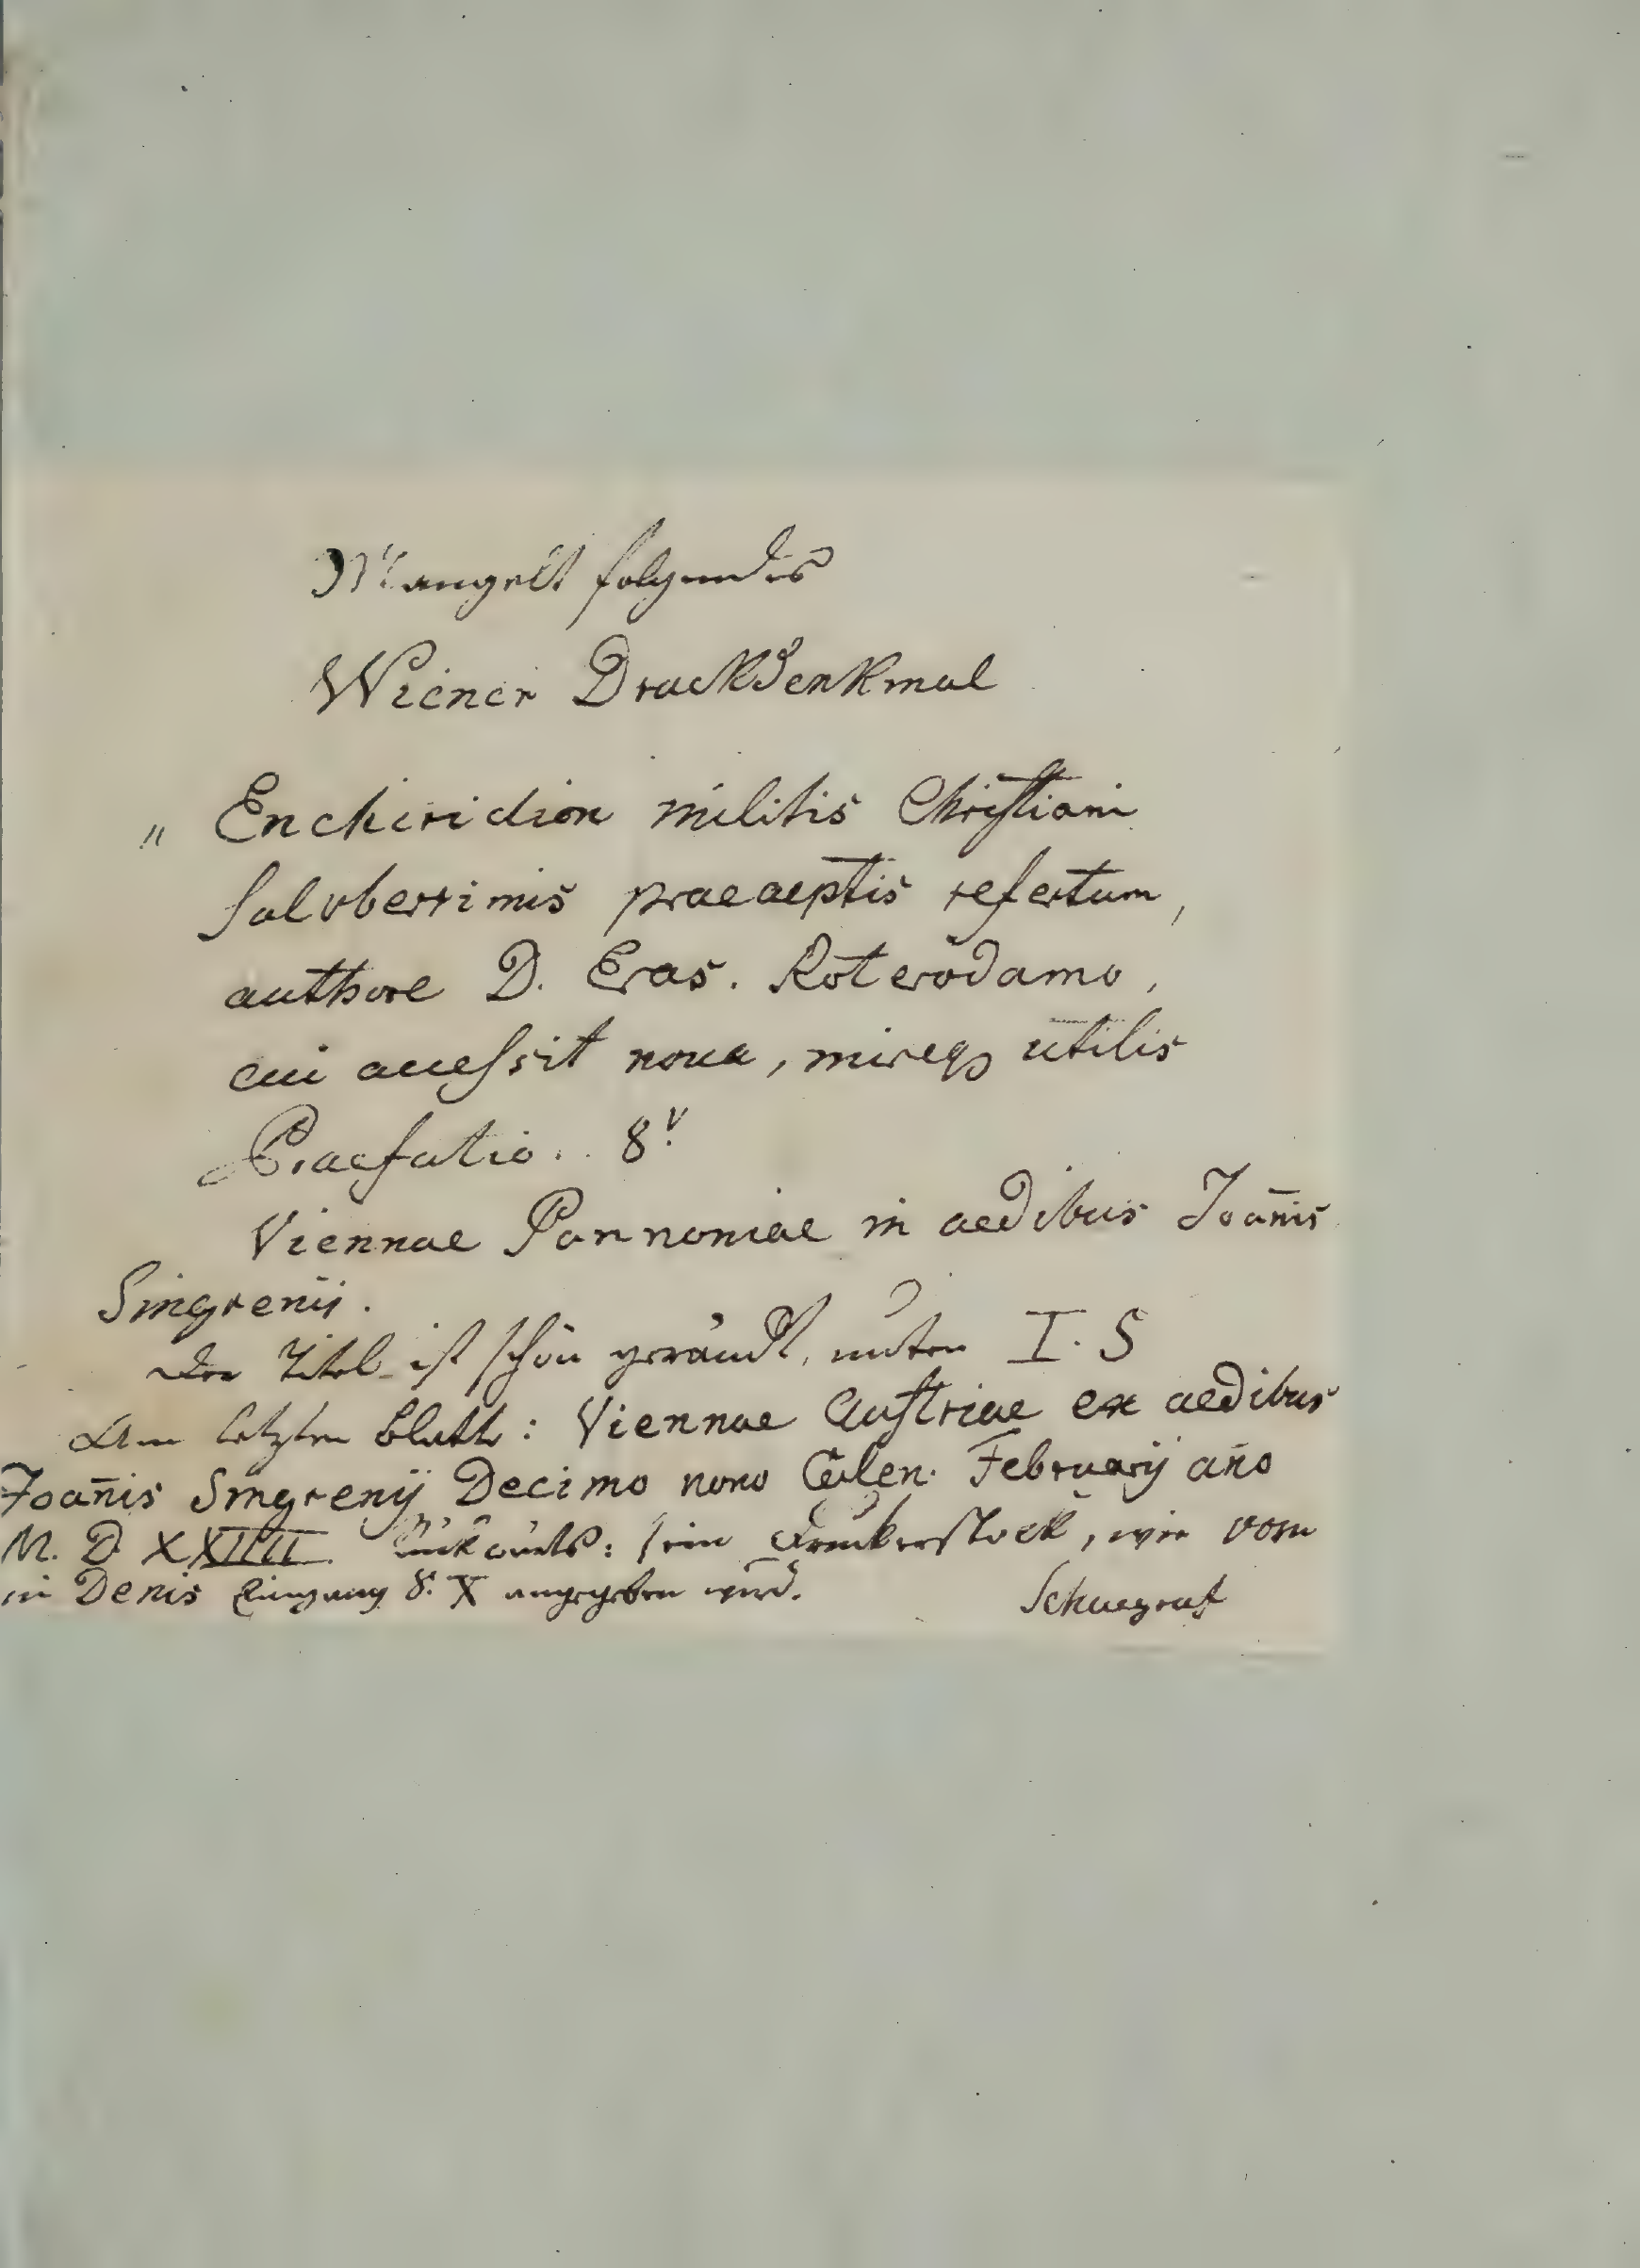 Mangelt folgendes
Wiener Druckdenkmal
„ Enchiridion militis Christiani
saluberrimis praeceptis refertum,
authore D. Eras. Roterodamo,
cui accessit noua, mireqʒ utilis
Praefatio. . 8.ᵛ
Viennae Pannoniae in aedibus Joān̄is
Singrenij.
Der Titel ist schön gerändt, unten I. S
Am letzten Blatte: Viennae Austriae ex aedibus
Joan̄is Singrenij Decimo nono Calen. Februarij an̄o
M. D XXIIII. Rückwärts: sein Druckerstock, wie vom
in Denis Eingang S. X angegeben wird. Schuegraf